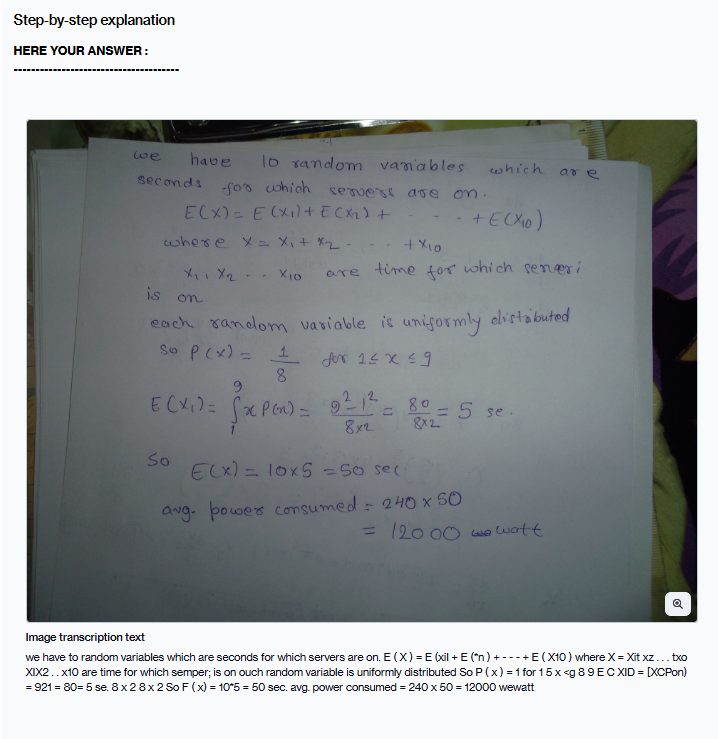 Step-by-step explanation
HERE YOUR ANSWER :
---------------------------------------
we have 10 random variables which are
seconds for which servers are on.
E(X) = E(X₁) + E(X₂) + - - - + E(X₁₀)
where X = X₁ + X₂ - - - + X₁₀
X₁, X₂ - - X₁₀ are time for which server i
is on
each random variable is uniformly distributed
so P(x) = 1/8 for 1 ≤ x ≤ 9
E(X₁) = ∫₁⁹ x P(x) = 9² - 1² / 8x2 = 80 / 8x2 = 5 se.
So E(X) = 10x5 = 50 sec
avg. power consumed = 240 x 50
= 12000 watt
Image transcription text
we have to random variables which are seconds for which servers are on. E ( X ) = E (xil + E (*n ) + - - - + E ( X10 ) where X = Xit xz . . . txo
XIX2 . . x10 are time for which semper; is on ouch random variable is uniformly distributed So P ( x ) = 1 for 1 5 x <g 8 9 E C XID = [XCPon)
= 921 = 80= 5 se. 8 x 2 8 x 2 So F ( x) = 10*5 = 50 sec. avg. power consumed = 240 x 50 = 12000 wewatt